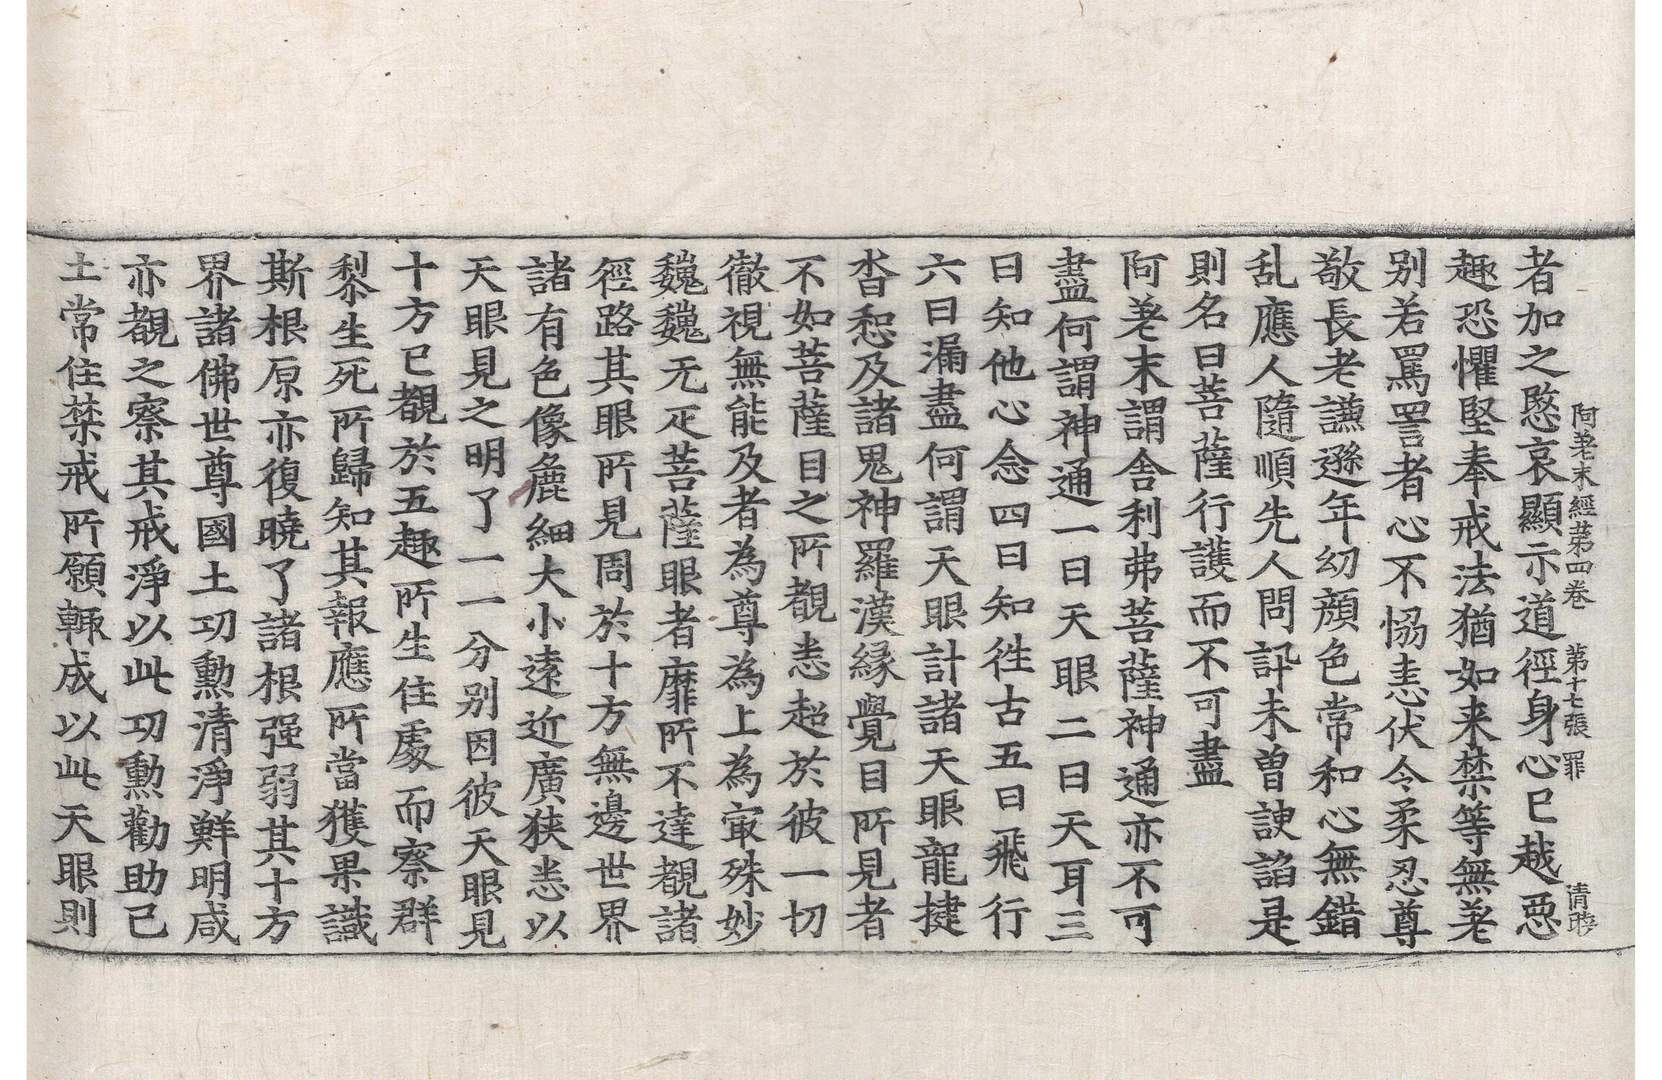 阿差末經苐四卷　第十七張　罪　清晈
者加之愍哀顯示道徑身心已越惡
趣恐懼堅奉戒法猶如来禁等無差
别若罵詈者心不恊恚伏令柔忍尊
敬長老謙遜年幼顔色常和心無錯
乱應人隨順先人問訊未曽諛諂是
則名曰菩薩行護而不可盡
阿差末謂舎利弗菩薩神通亦不可
盡何謂神通一曰天眼二曰天耳三
曰知他心念四曰知徃古五曰飛行
六曰漏盡何謂天眼計諸天眼龍揵
沓惒及諸鬼神羅漢緣覺目所見者
不如菩薩目之所覩恚超於彼一切
徹視無能及者為尊為上為㝡殊妙
巍巍无疋菩薩眼者靡所不達覩諸
徑路其眼所見周於十方無邊世界
諸有色像麁細大小逺近廣狹悉以
天眼見之明了一一分别因彼天眼見
十方已覩於五趣所生住處而察群
黎生死所歸知其報應所當獲果識
斯根原亦復曉了諸根强弱其十方
界諸佛世尊國土功勲清淨鮮明咸
亦覩之察其戒淨以此功勲勸助已
土常住禁戒所願輙成以此天眼則